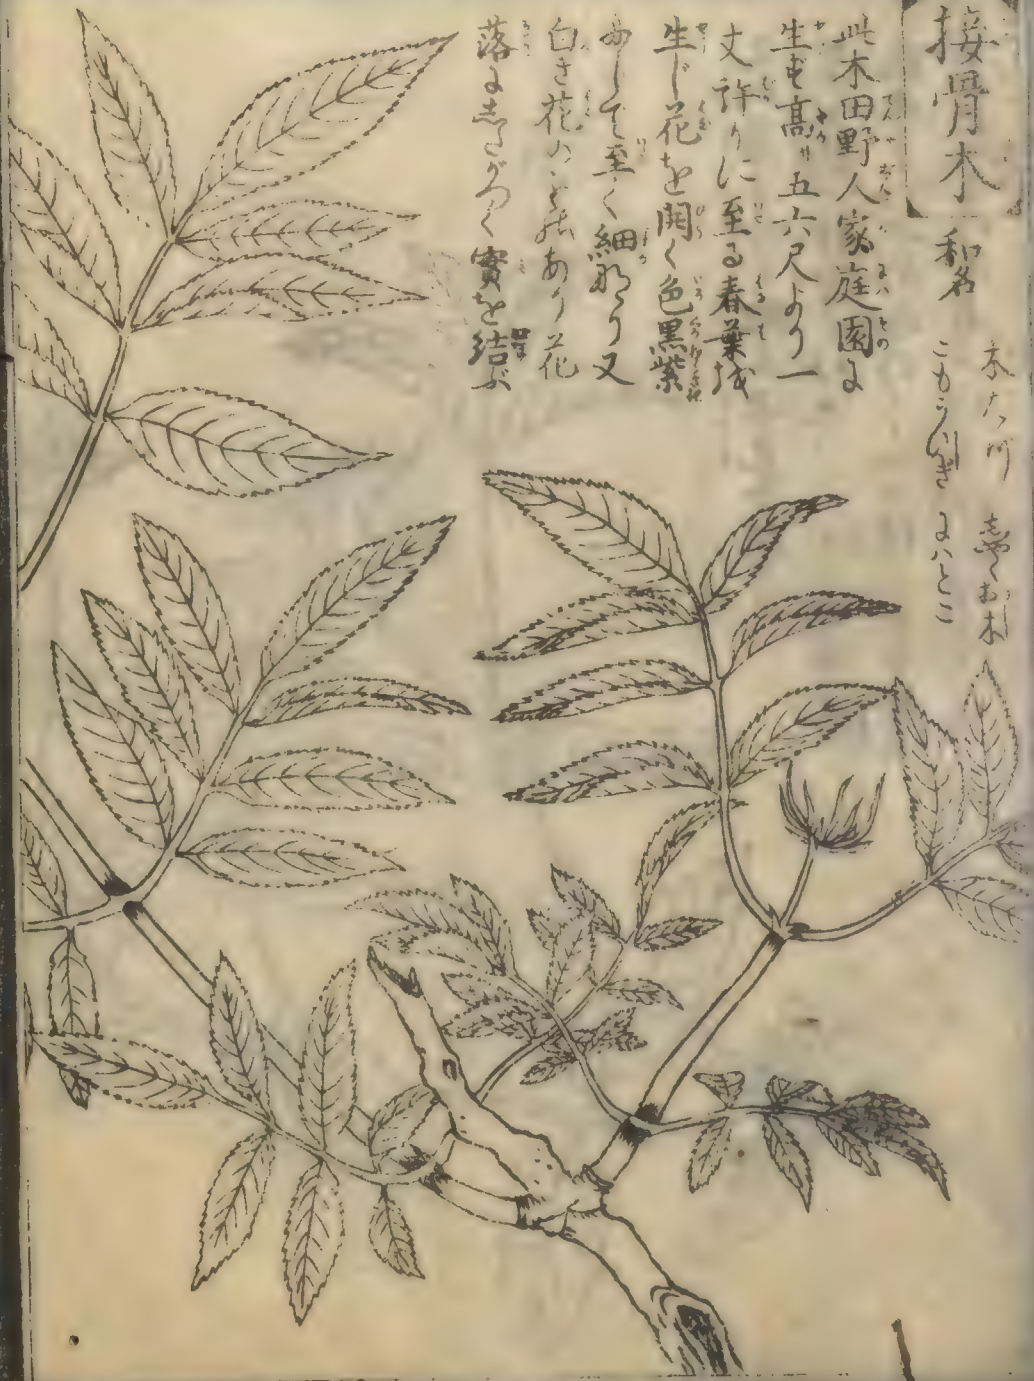 接骨木 和名
木たづ
こもうつぎ にハとこ
此木田野人家庭園に
生ず高サ五六尺より一
丈許りに至る春葉を
生じ花を開く色黒紫
にして至て細なり又
白き花のものあり花
落にしたがつて實を結ぶ